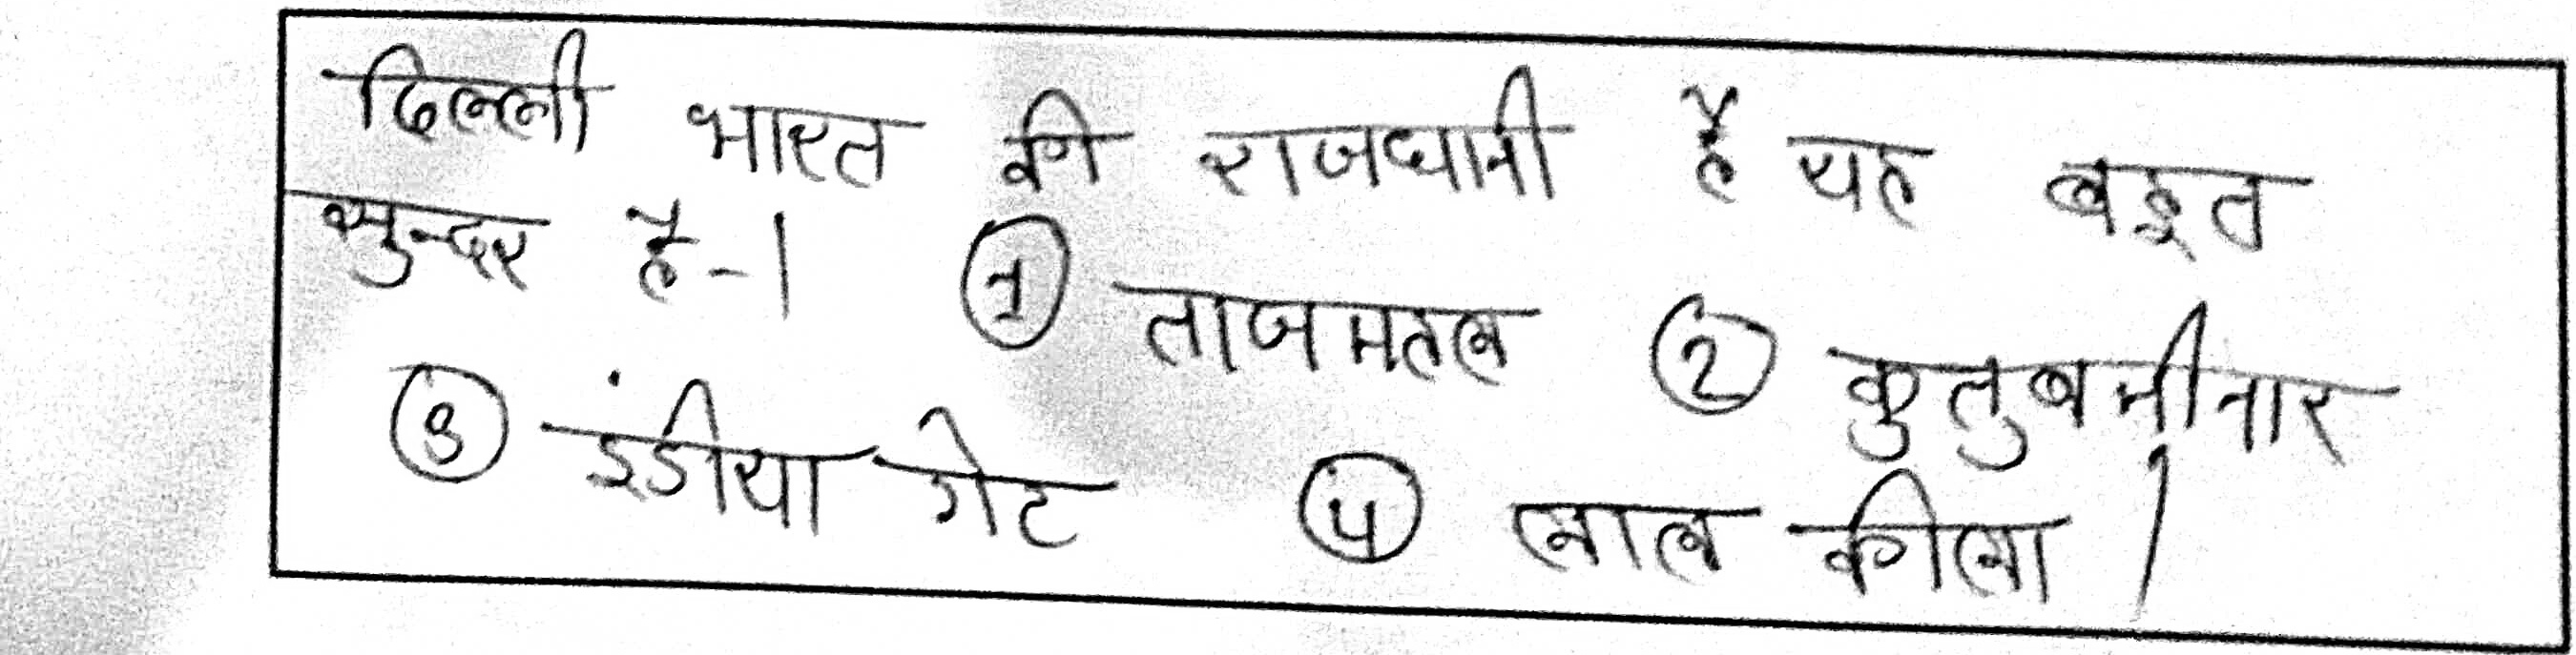 दिल्ली भारत की राजधानी है यह बहुत
सुन्दर है-। ① ताजमहल ② कुतुबमीनार
③ इंडीया गेट ④ लाल कीला।